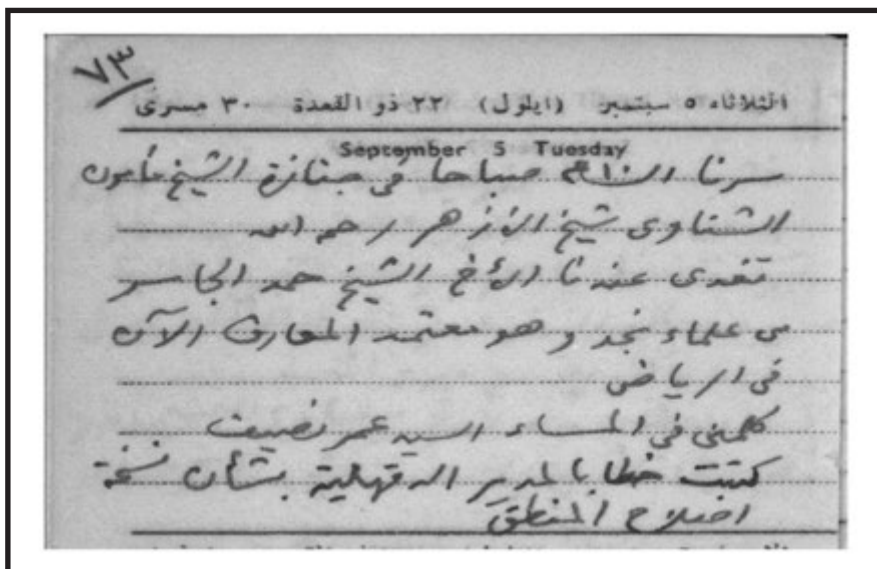 ٧٣
الثلاثاء ٥ سبتمبر (ايلول) ٢٢ ذو القعدة ٣٠ مسرى
September 5 Tuesday
سرنا الـ ١٠ صباحا في جنازة الشيخ مأمون
الشناوى شيخ الأزهر رحمه الله
تغدى عندنا الأخ الشيخ حمد الجاسر
من علماء نجد وهو معتمد المعارف الآن
في الرياض
كلمنى في المساء السيد عمر نصيف
كتبت خطابا لمدير الدقهلية بشأن نسخة
اصلاح المنطق